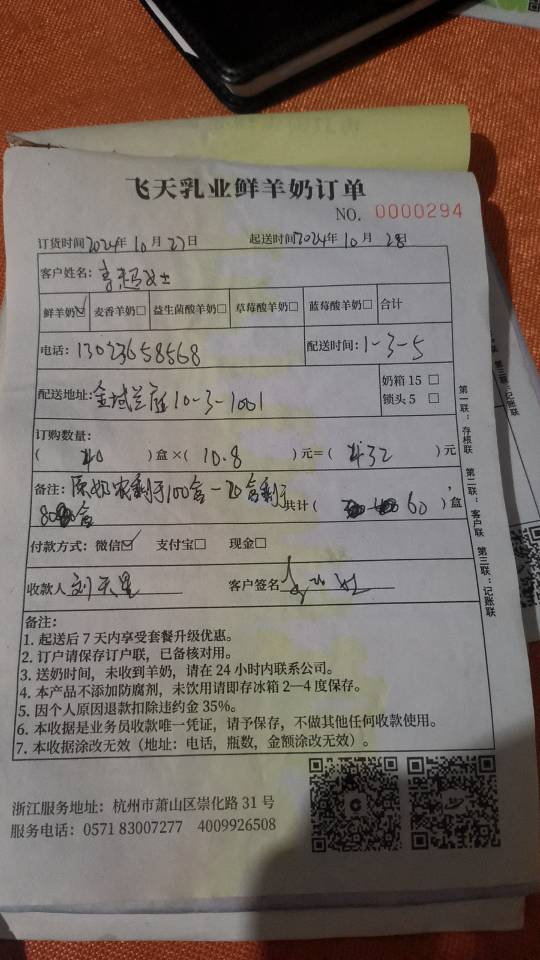 飞天乳业鲜羊奶订单
NO. 0000294
订货时间2024年10月27日 起送时间2024年10月28日
客户姓名: 女士
鲜羊奶☑ 麦香羊奶□ 益生菌酸羊奶□ 草莓酸羊奶□ 蓝莓酸羊奶□ 合计
电话: 13023658568 配送时间: 1-3-5
配送地址: 金域兰庭10-3-1001
奶箱 15 □
锁头 5 □
订购数量:
( 40 )盒×( 10.8 )元=( 432 )元
备注: 剩于100盒-20盒剩于
80盒 共计( 60 )盒
付款方式: 微信☑ 支付宝□ 现金□
收款人 刘天星 客户签名
第一联: 存根联 第二联: 客户联 第三联: 记账联
备注:
1. 起送后 7 天内享受套餐升级优惠。
2. 订户请保存订户联, 已备核对用。
3. 送奶时间, 未收到羊奶, 请在 24 小时内联系公司。
4. 本产品不添加防腐剂, 未饮用请即存冰箱 2—4 度保存。
5. 因个人原因退款扣除违约金 35%。
6. 本收据是业务员收款唯一凭证, 请予保存, 不做其他任何收款使用。
7. 本收据涂改无效 (地址: 电话, 瓶数, 金额涂改无效)。
浙江服务地址: 杭州市萧山区崇化路 31 号
服务电话: 0571 83007277 4009926508